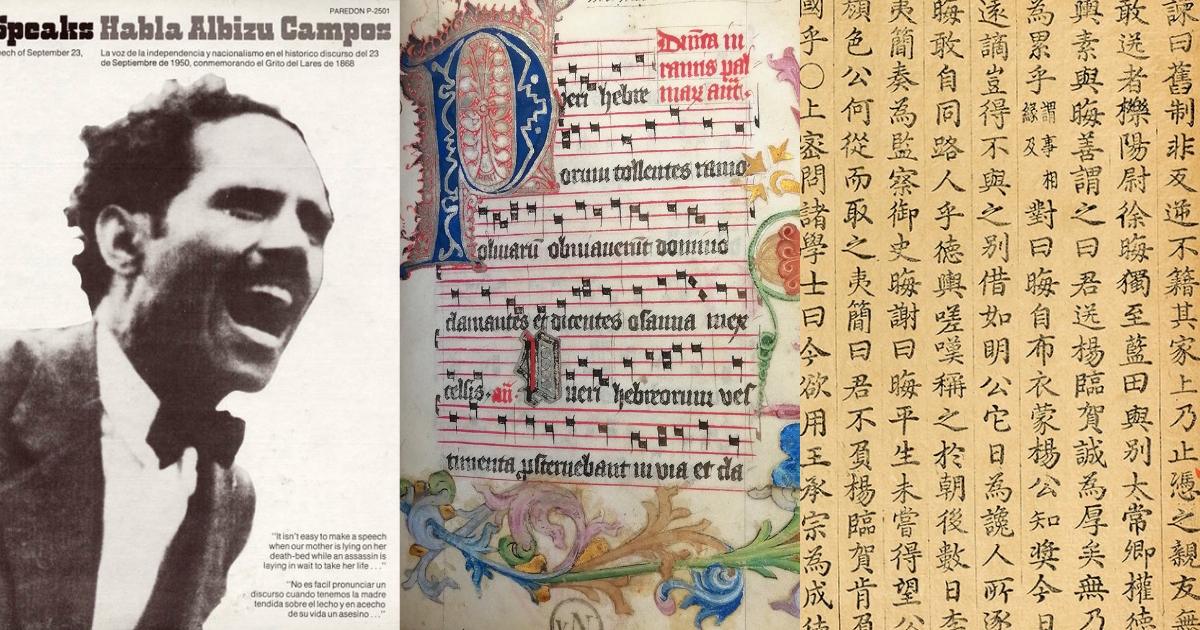 PAREDON P-2501
Speaks Habla Albizu Campos
eech of September 23,
La voz de la independencia y nacionalismo en el historico discurso del 23
de Septiembre de 1950, conmemorando el Grito del Lares de 1868
"It isn't easy to make a speech
when our mother is lying on her
death-bed while an assassin is
laying in wait to take her life . . ."
"No es facil pronunciar un
discurso cuando tenemos la madre
tendida sobre el lecho y en acecho
de su vida un asesino . . ."
Dnica in
ramis pal
Pueri hebre
orum tollentes ramo
olivarū obviaverūt domino
clamantes et dicentes osanna in ex
celsis. an Pueri hebreorum ves
timenta prosternebant in via et cla
諫曰舊制非反逆不籍其家上乃止憑之親友無
敢送者櫟陽尉徐晦獨至藍田與別太常卿權德
輿素與晦善謂之曰君送楊臨賀誠為厚矣無乃
為累乎謂事相緣及對曰晦自布衣蒙楊公知獎今日
遠謫豈得不與之別借如明公它日為讒人所逐
晦敢自同路人乎德輿嗟嘆稱之於朝後數日李
夷簡奏為監察御史晦謝曰晦平生未嘗得望公
顏色公何從而取之夷簡曰君不負楊臨賀肯負
國乎○上密問諸學士曰今欲用王承宗為成德